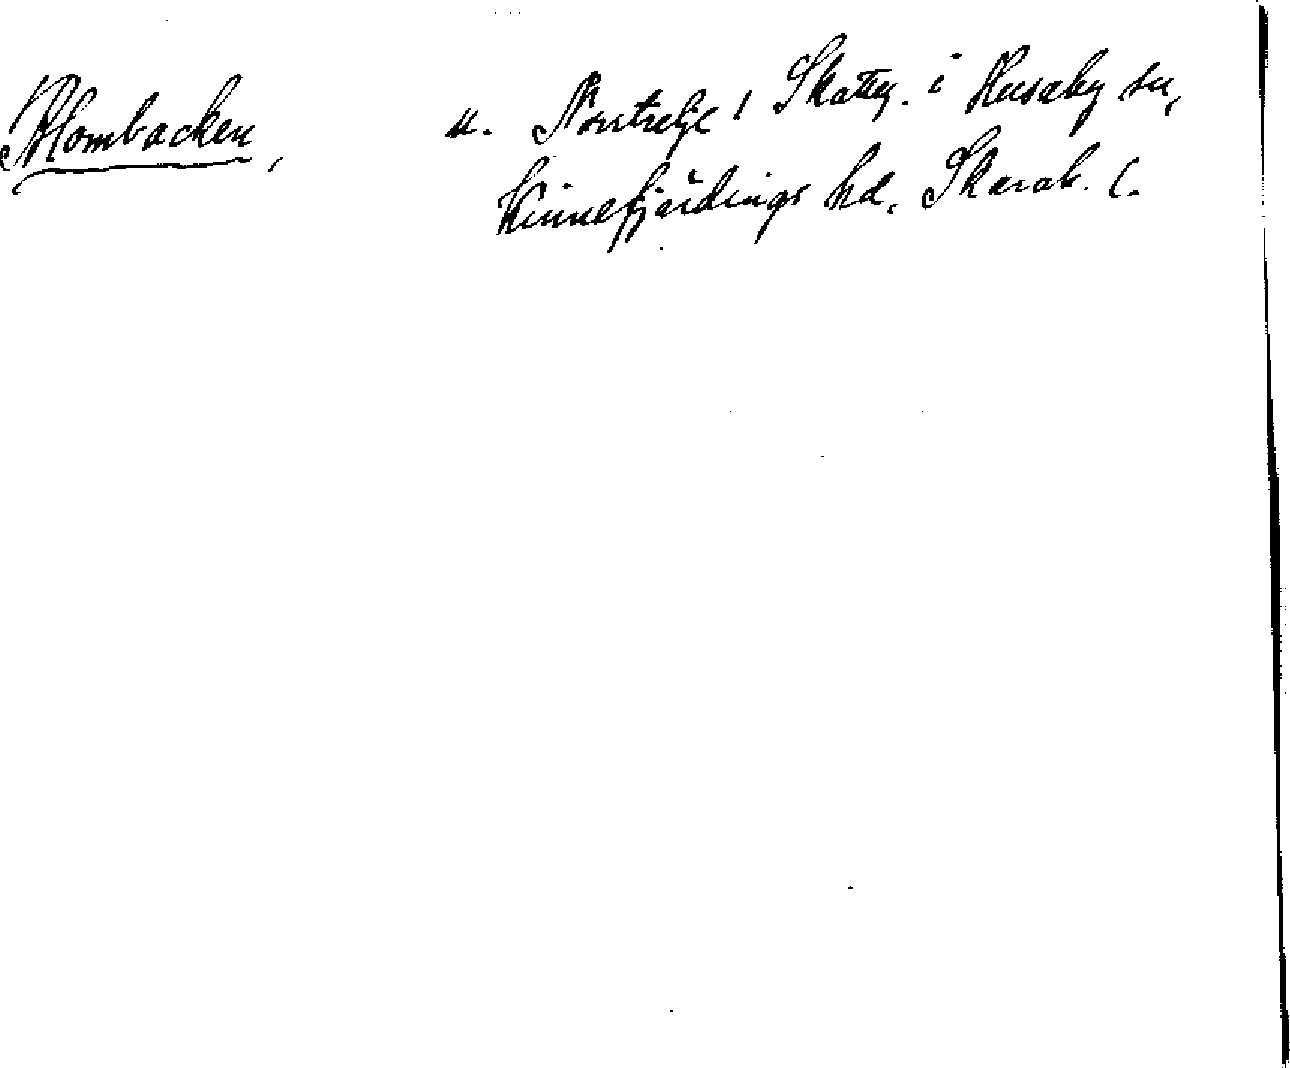 Blombacken, u. Norrtelje, Skatteg. i Husaby sn,
Kinnefjärdings hd, Skarab. l.